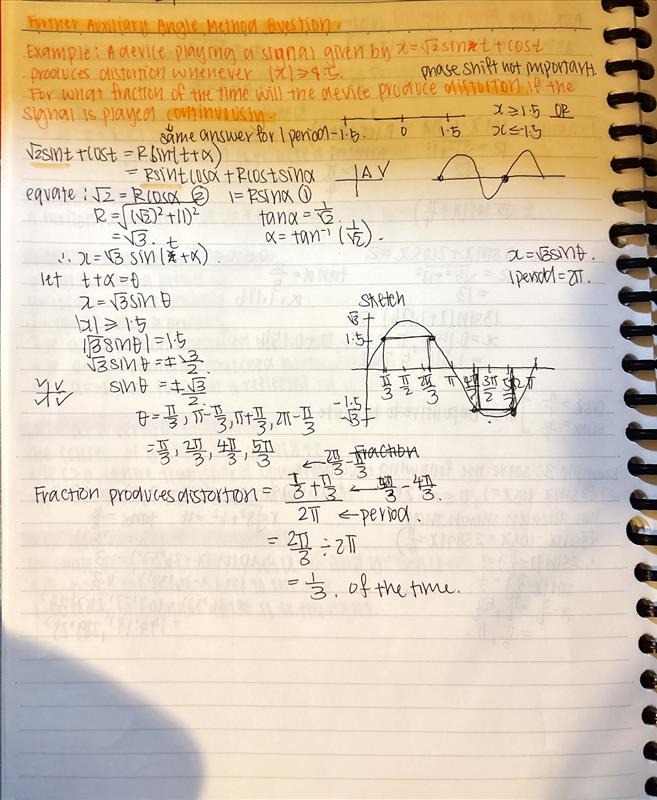 Further Auxiliary Angle Method Question.
Example: A device playing a signal given by x=√2sint+cost
produces distortion whenever |x|≥1.5.
phase shift not important.
For what fraction of the time will the device produce distortion if the
signal is played continuously.
x≥1.5 OR
x≤-1.5
same answer for 1 period
-1.5 0 1.5
√2sint+cost = Rsin(t+α)
= Rsintcosα+Rcostsinα
A V
equate: √2=Rcosα ② 1=Rsinα ①
R=√(√2)²+(1)² tanα=1/√2.
=√3. α=tan⁻¹(1/√2).
∴ x=√3 sin(t+α).
x=√3sinθ.
let t+α=θ
1period=2π.
x=√3sinθ
sketch
|x|≥1.5
√3
1.5
|√3sinθ|=1.5
√3sinθ=±3/2.
π/3 π/2 2π/3 π 4π/3 3π/2 5π/3 2π
sinθ=±√3/2.
-1.5
√3
θ=π/3, π-π/3, π+π/3, 2π-π/3
=π/3, 2π/3, 4π/3, 5π/3
← 2π/3-π/3
Fraction produces distortion = π/3+π/3 ← 5π/3-4π/3.
2π ← period.
= 2π/3 ÷ 2π
= 1/3. of the time.